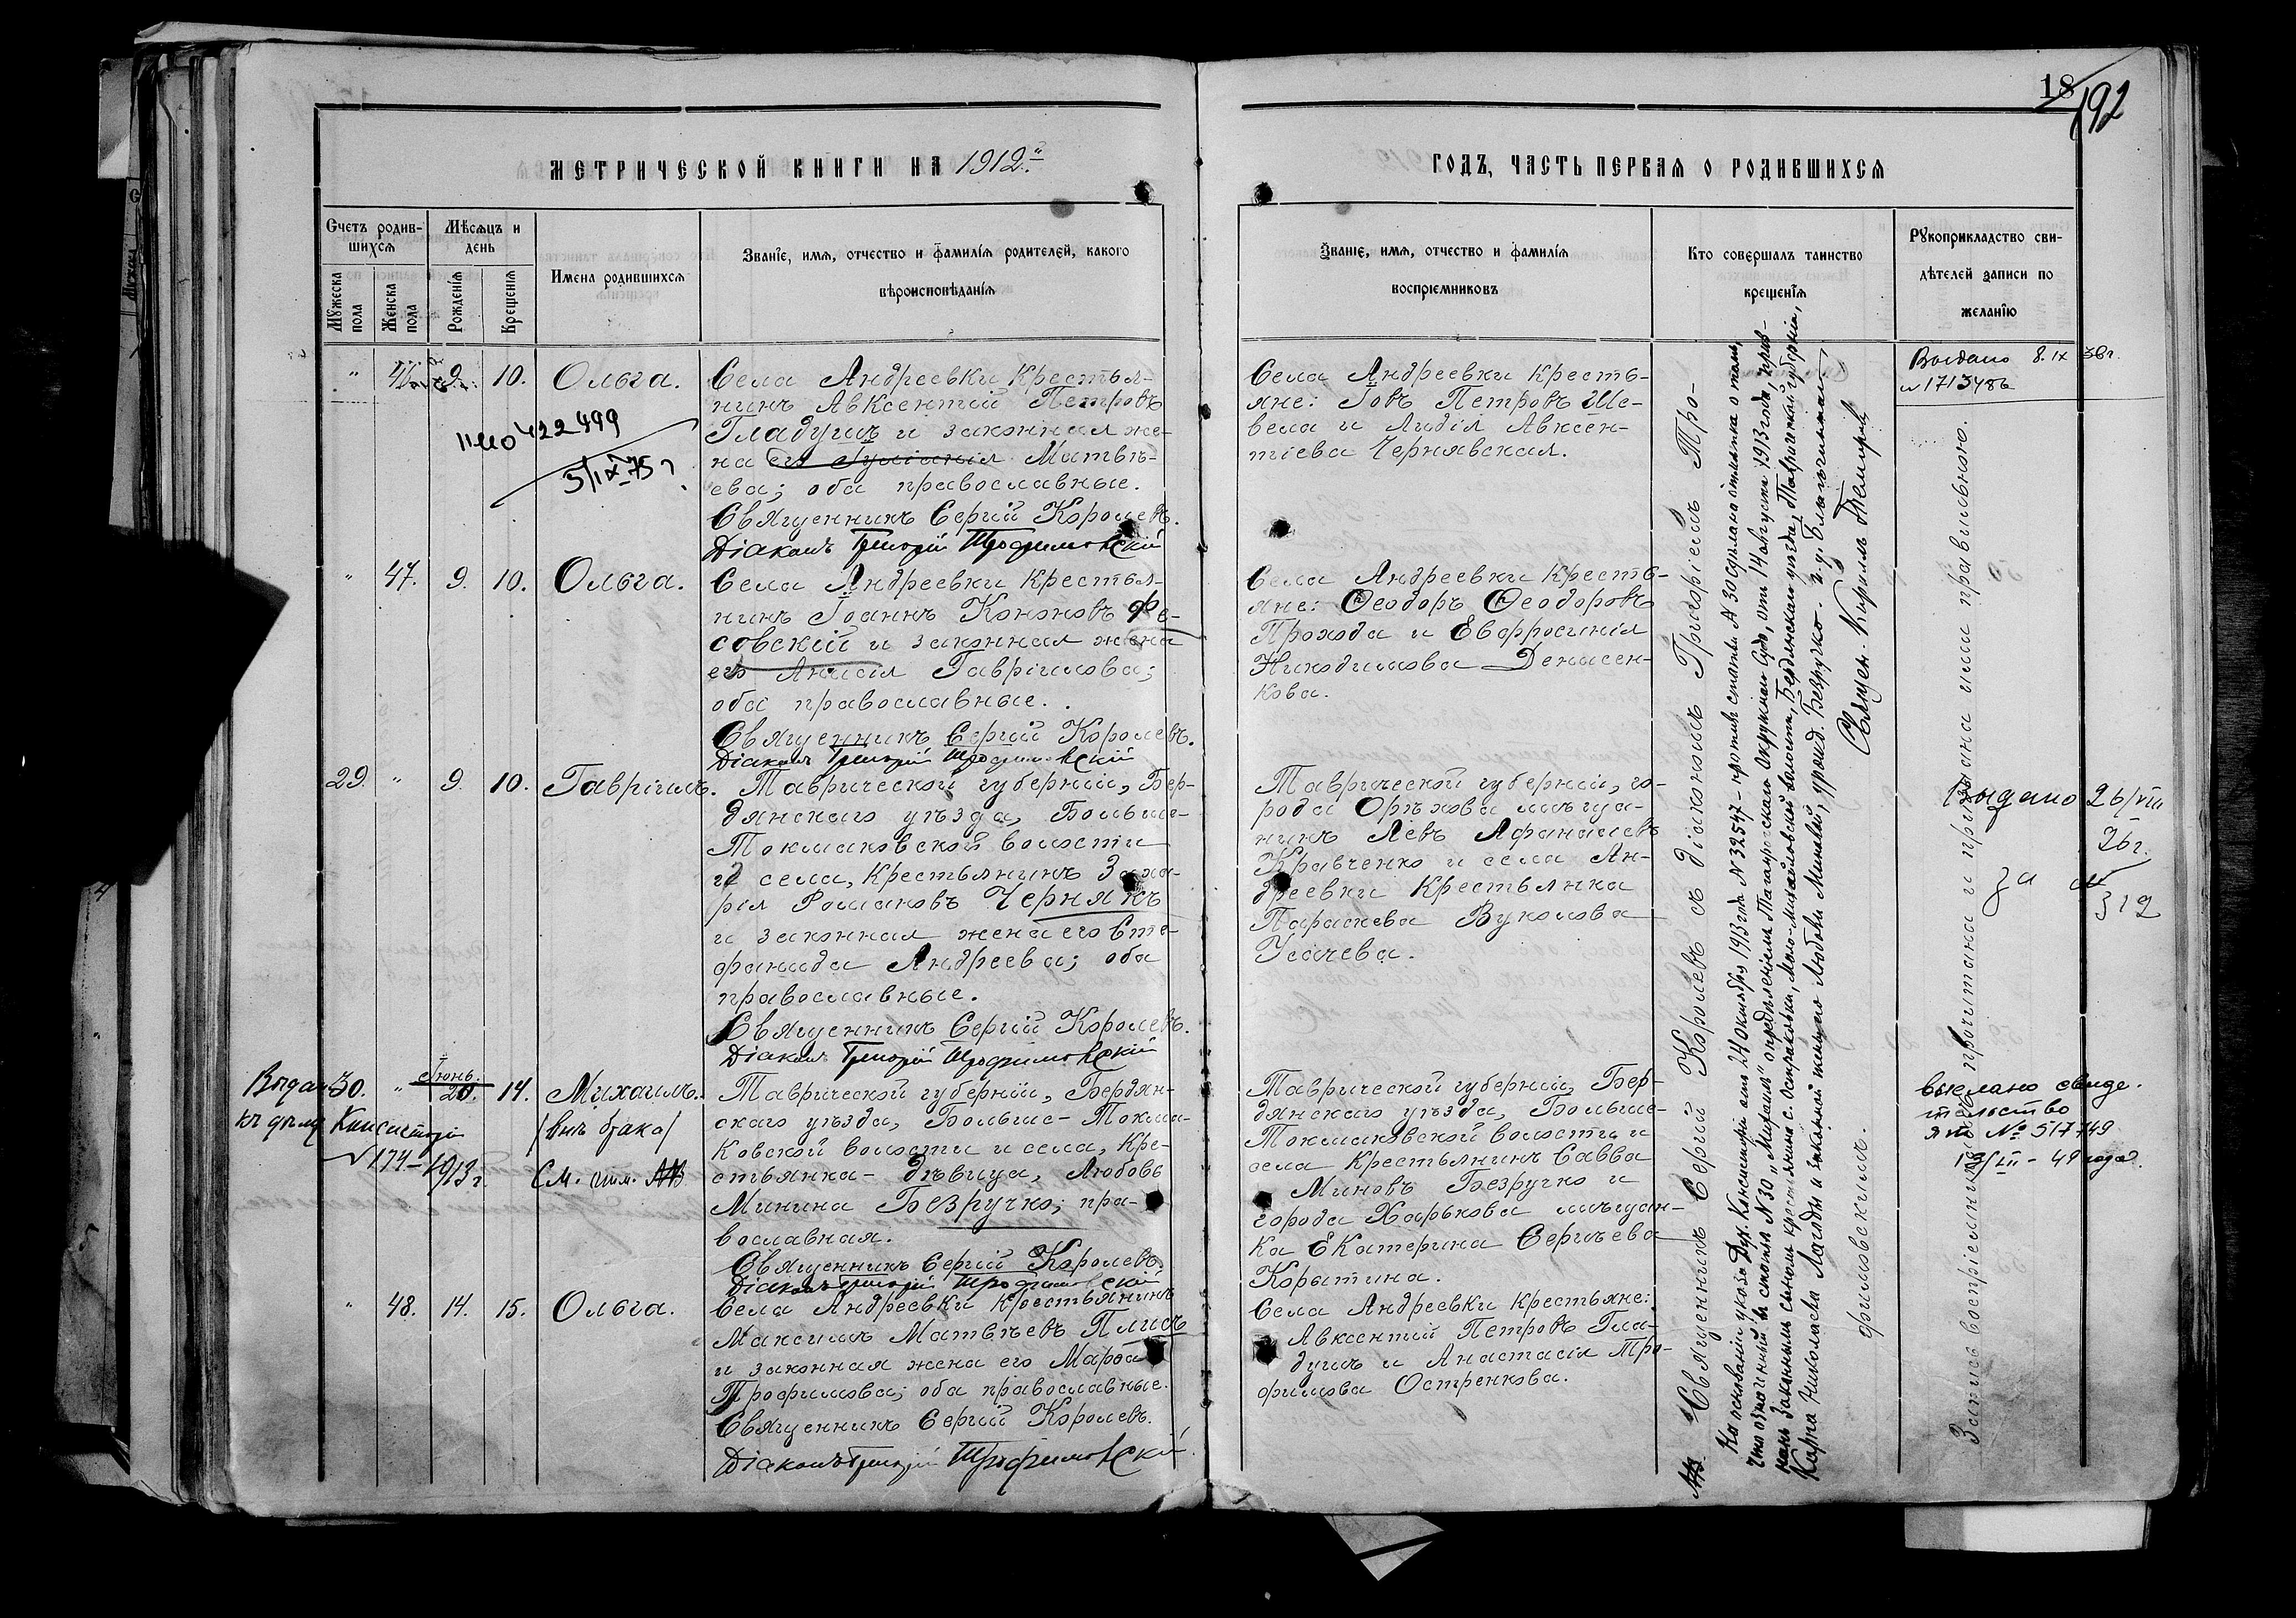 18
192
МЕТРИЧЕСКОЙ КНИГИ НА 1912.
ГОДЪ, ЧАСТЬ ПЕРВАЯ О РОДИВШИХСЯ
Счетъ родив-
шихся
Мѣсяцъ и
день
Мужеска
пола
Женска
пола
Рожденія
Крещенія
Имена родившихся
Званіе, имя, отчество и фамилія родителей, какого
вѣроисповѣданія
Званіе, имя, отчество и фамилія
воспріемниковъ
Кто совершалъ таинство
крещенія
Рукоприкладство сви-
дѣтелей записи по
желанію
" 46. 9. 10. Ольга.
422499
5/IX 75 г
Села Андреевки крестья-
нинъ Авксентій Петровъ
Гладушъ и законная же-
на его Іуліанія Матвѣ-
ева; оба православные.
Священникъ Сергій Королевъ.
Діаконъ Григорій Трофимовскій
Села Андреевки кресть-
яне: Іовъ Петровъ Ше-
вела и Лидія Авксен-
тіева Чернявская.
Выдано 8.IX 36г.
№1713486
" 47. 9. 10. Ольга.
Села Андреевки крестья-
нинъ Іоаннъ Кононовъ Фе-
совскій и законная жена
его Анисія Гавріилова;
оба православные.
Священникъ Сергій Королевъ.
Діаконъ Григорій Трофимовскій
Села Андреевки кресть-
яне: Ѳеодоръ Ѳеодоровъ
Прохода и Евфросинія
Никодимова Денисен-
кова.
29. " 9. 10. Гавріилъ.
Таврической губерніи, Бер-
дянскаго уѣзда, Больше-
Токмаковской волости
и села, крестьянинъ Заха-
рія Романовъ Чернякъ
и законная жена его Сте-
фанида Андреева; оба
православные.
Священникъ Сергій Королевъ.
Діаконъ Григорій Трофимовскій
Таврической губерніи, го-
рода Орѣхова мѣща-
нинъ Левъ Афанасіевъ
Кравченко и села Ан-
дреевки крестьянка
Параскева Вуколова
Усачева.
Выдано 26/VIII
26г.
за №
312
Выдан
къ дѣлу Консисторіи
№174-1913 г.
30. " Іюнь. 20. 14. Михаилъ.
/внѣ брака/
См. прим.
Таврической губерніи, Бердян-
скаго уѣзда, Больше-Токма-
ковской волости и села, кре-
стьянка-дѣвица, Любовь
Минина Безручко; пра-
вославная.
Священникъ Сергій Королевъ.
Діаконъ Григорій Трофимовскій
Таврической губерніи, Бер-
дянскаго уѣзда, Больше-
Токмаковской волости и
села крестьянинъ Савва
Миновъ Безручко и
города Харькова мѣщан-
ка Екатерина Сергіева
Корытина.
выслано свиде-
тельство
ЯП № 517749
13/III - 49 года.
" 48. 14. 15. Ольга.
Села Андреевки крестьянинъ
Максимъ Матвѣевъ Плисъ
и законная жена его Марѳа
Трофимова; оба православные.
Священникъ Сергій Королевъ.
Діаконъ Григорій Трофимовскій
Села Андреевки крестьяне:
Авксентій Петровъ Гла-
душъ и Анастасія Тро-
фимова Остренкова.
Священникъ Сергій Королевъ съ діакономъ Григоріемъ Тро-
фимовскимъ.
На основаніи указа Дух. Консисторіи отъ 24 Октября 1913 года №32547 - противъ статьи №30 сдѣлана отмѣтка о томъ,
что означенный въ статьѣ №30 "Михаилъ" опредѣленіемъ Таганрогскаго Окружнаго Суда, отъ 14 августа 1913 года, приз-
нанъ законнымъ сыномъ крестьянина с. Остраковки, Мало-Михайловской волости, Бердянскаго уѣзда, Таврической губерніи,
Карпа Николаева Лагоды и законной жены его Любови Минаевой, урожд. Безручко. и.д. Благочиннаго
Священ. Кириллъ Темировъ
Запись воспріемниками прочитана и признана ими правильною.